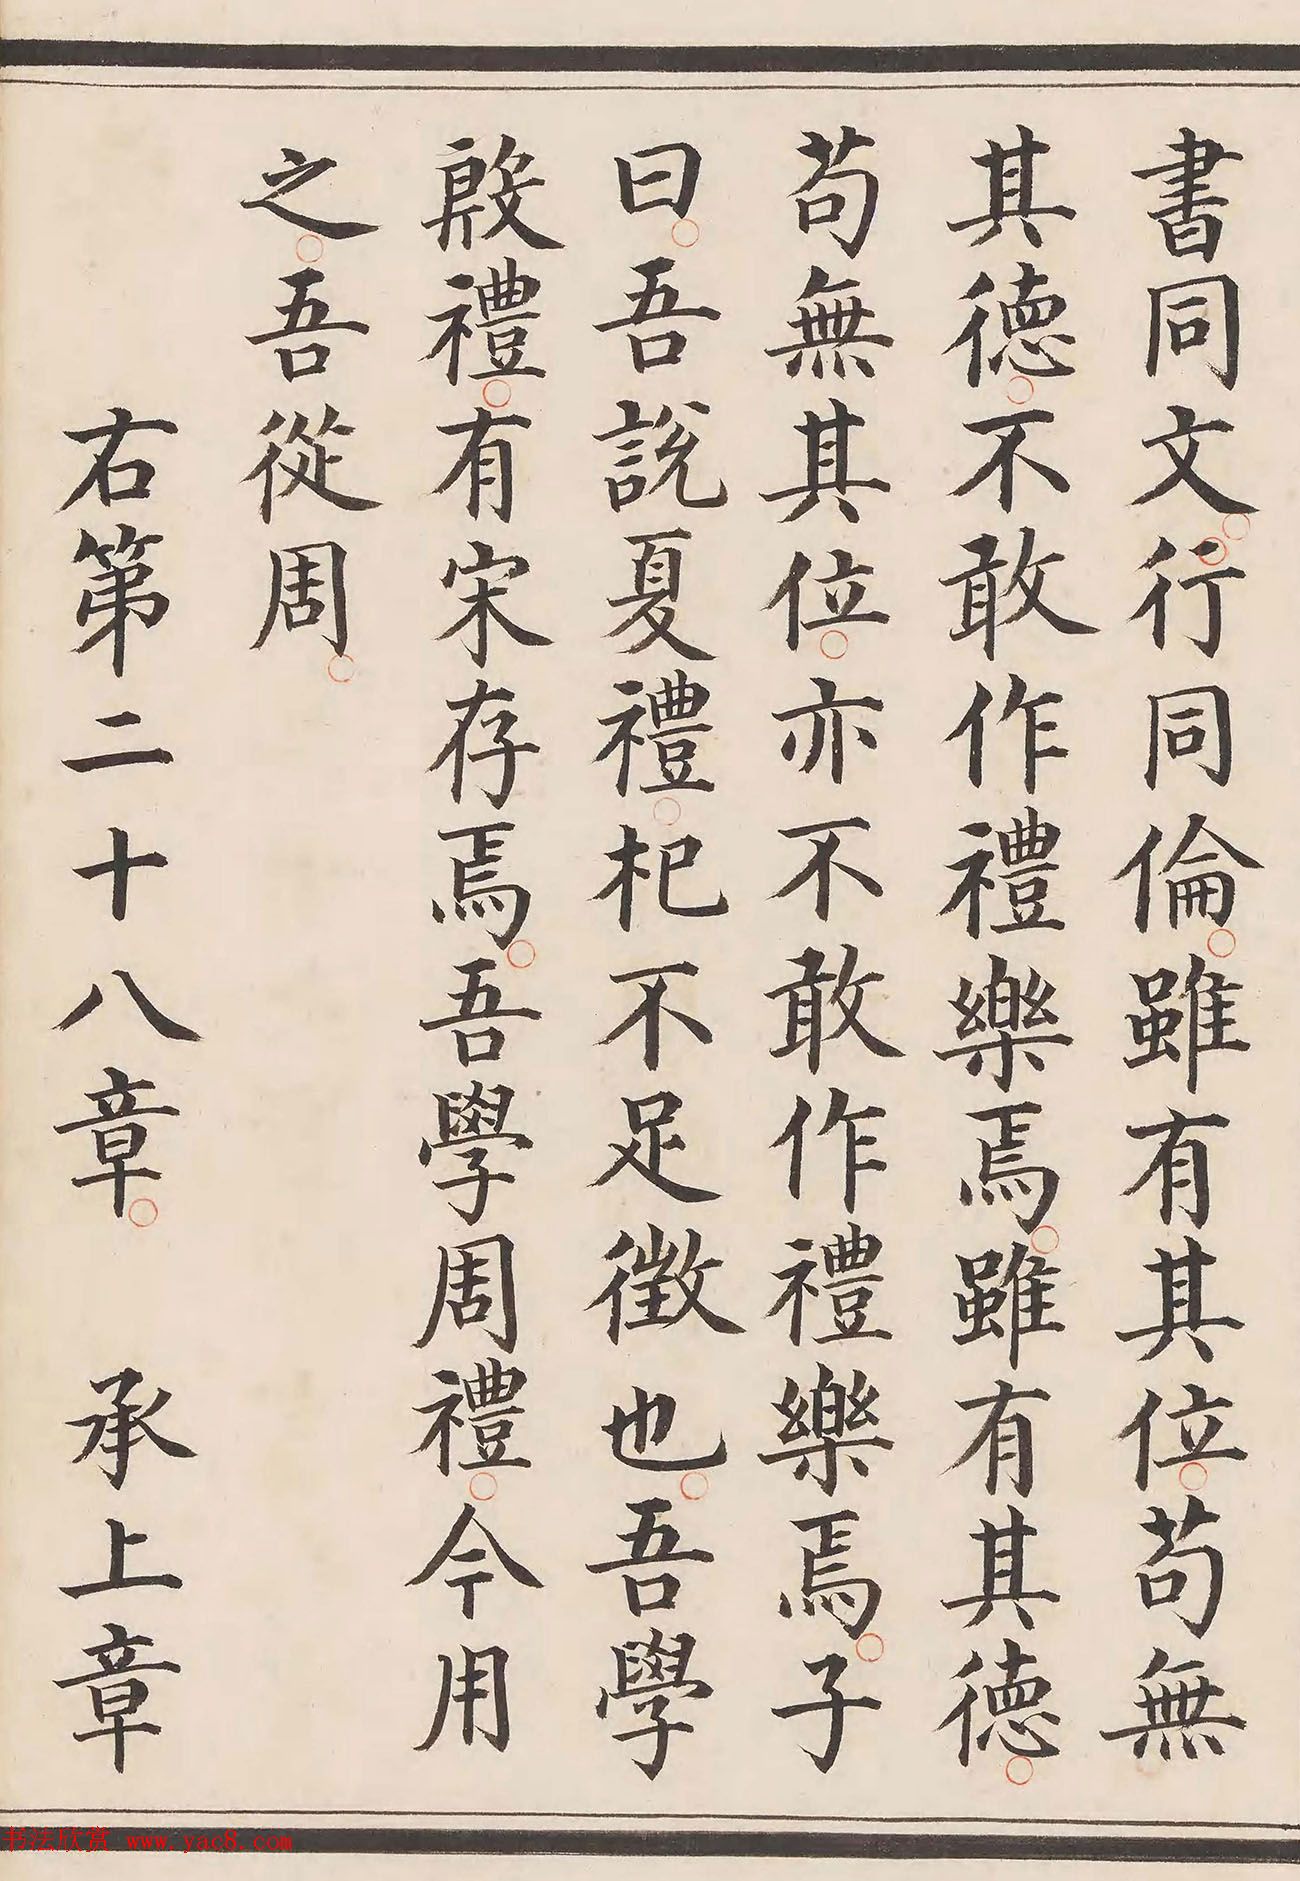 書同文行同倫雖有其位苟無
其德不敢作禮樂焉雖有其德
苟無其位亦不敢作禮樂焉子
曰吾說夏禮杞不足徵也吾學
殷禮有宋存焉吾學周禮今用
之吾從周
右第二十八章 承上章
书法欣赏 www.yac8.com